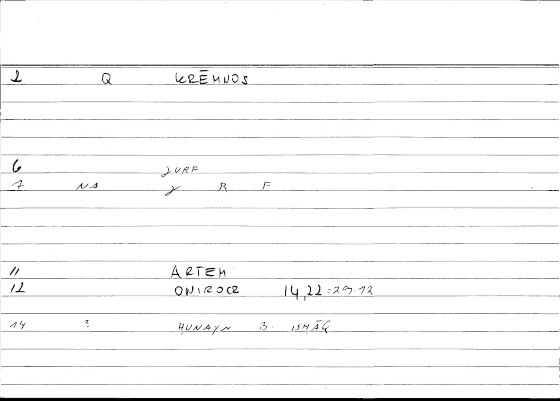 2 Q KRĒMNOS
6 ǧURF
7 NS ǧ R F
11 ARTEM
12 ONIROCR 14,22 = 29.12
14 ? ḤUNAYN B. ISḤĀQ